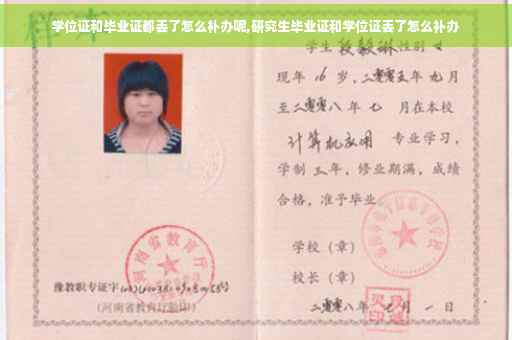 学位证和毕业证都丢了怎么补办呢,研究生毕业证和学位证丢了怎么补办
样本
学生 性别 女
现年 16 岁,二零零五年 九月
至二零零八年 七 月在本校
计算机应用 专业学习,
学制 三年,修业期满,成绩
合格,准予毕业
学校(章)
校长(章)
二零零八年 月 一 日
河南省教育厅
豫教职专证字
(河南省教育厅验印)